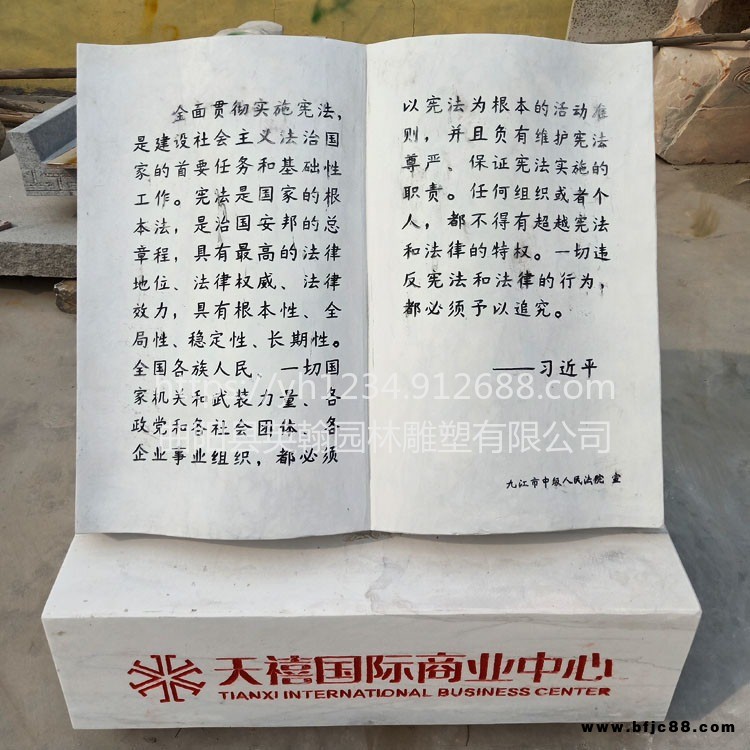 全面贯彻实施宪法，
是建设社会主义法治国
家的首要任务和基础性
工作。宪法是国家的根
本法，是治国安邦的总
章程，具有最高的法律
地位、法律权威、法律
效力，具有根本性、全
局性、稳定性、长期性。
全国各族人民、一切国
家机关和武装力量、各
政党和各社会团体、各
企业事业组织，都必须
以宪法为根本的活动准
则，并且负有维护宪法
尊严、保证宪法实施的
职责。任何组织或者个
人，都不得有超越宪法
和法律的特权。一切违
反宪法和法律的行为，
都必须予以追究。
——习近平
九江市中级人民法院 宣
https://yh1234.912688.com/
曲阳县英翰园林雕塑有限公司
天禧国际商业中心
TIANXI INTERNATIONAL BUSINESS CENTER
www.bfjc88.com